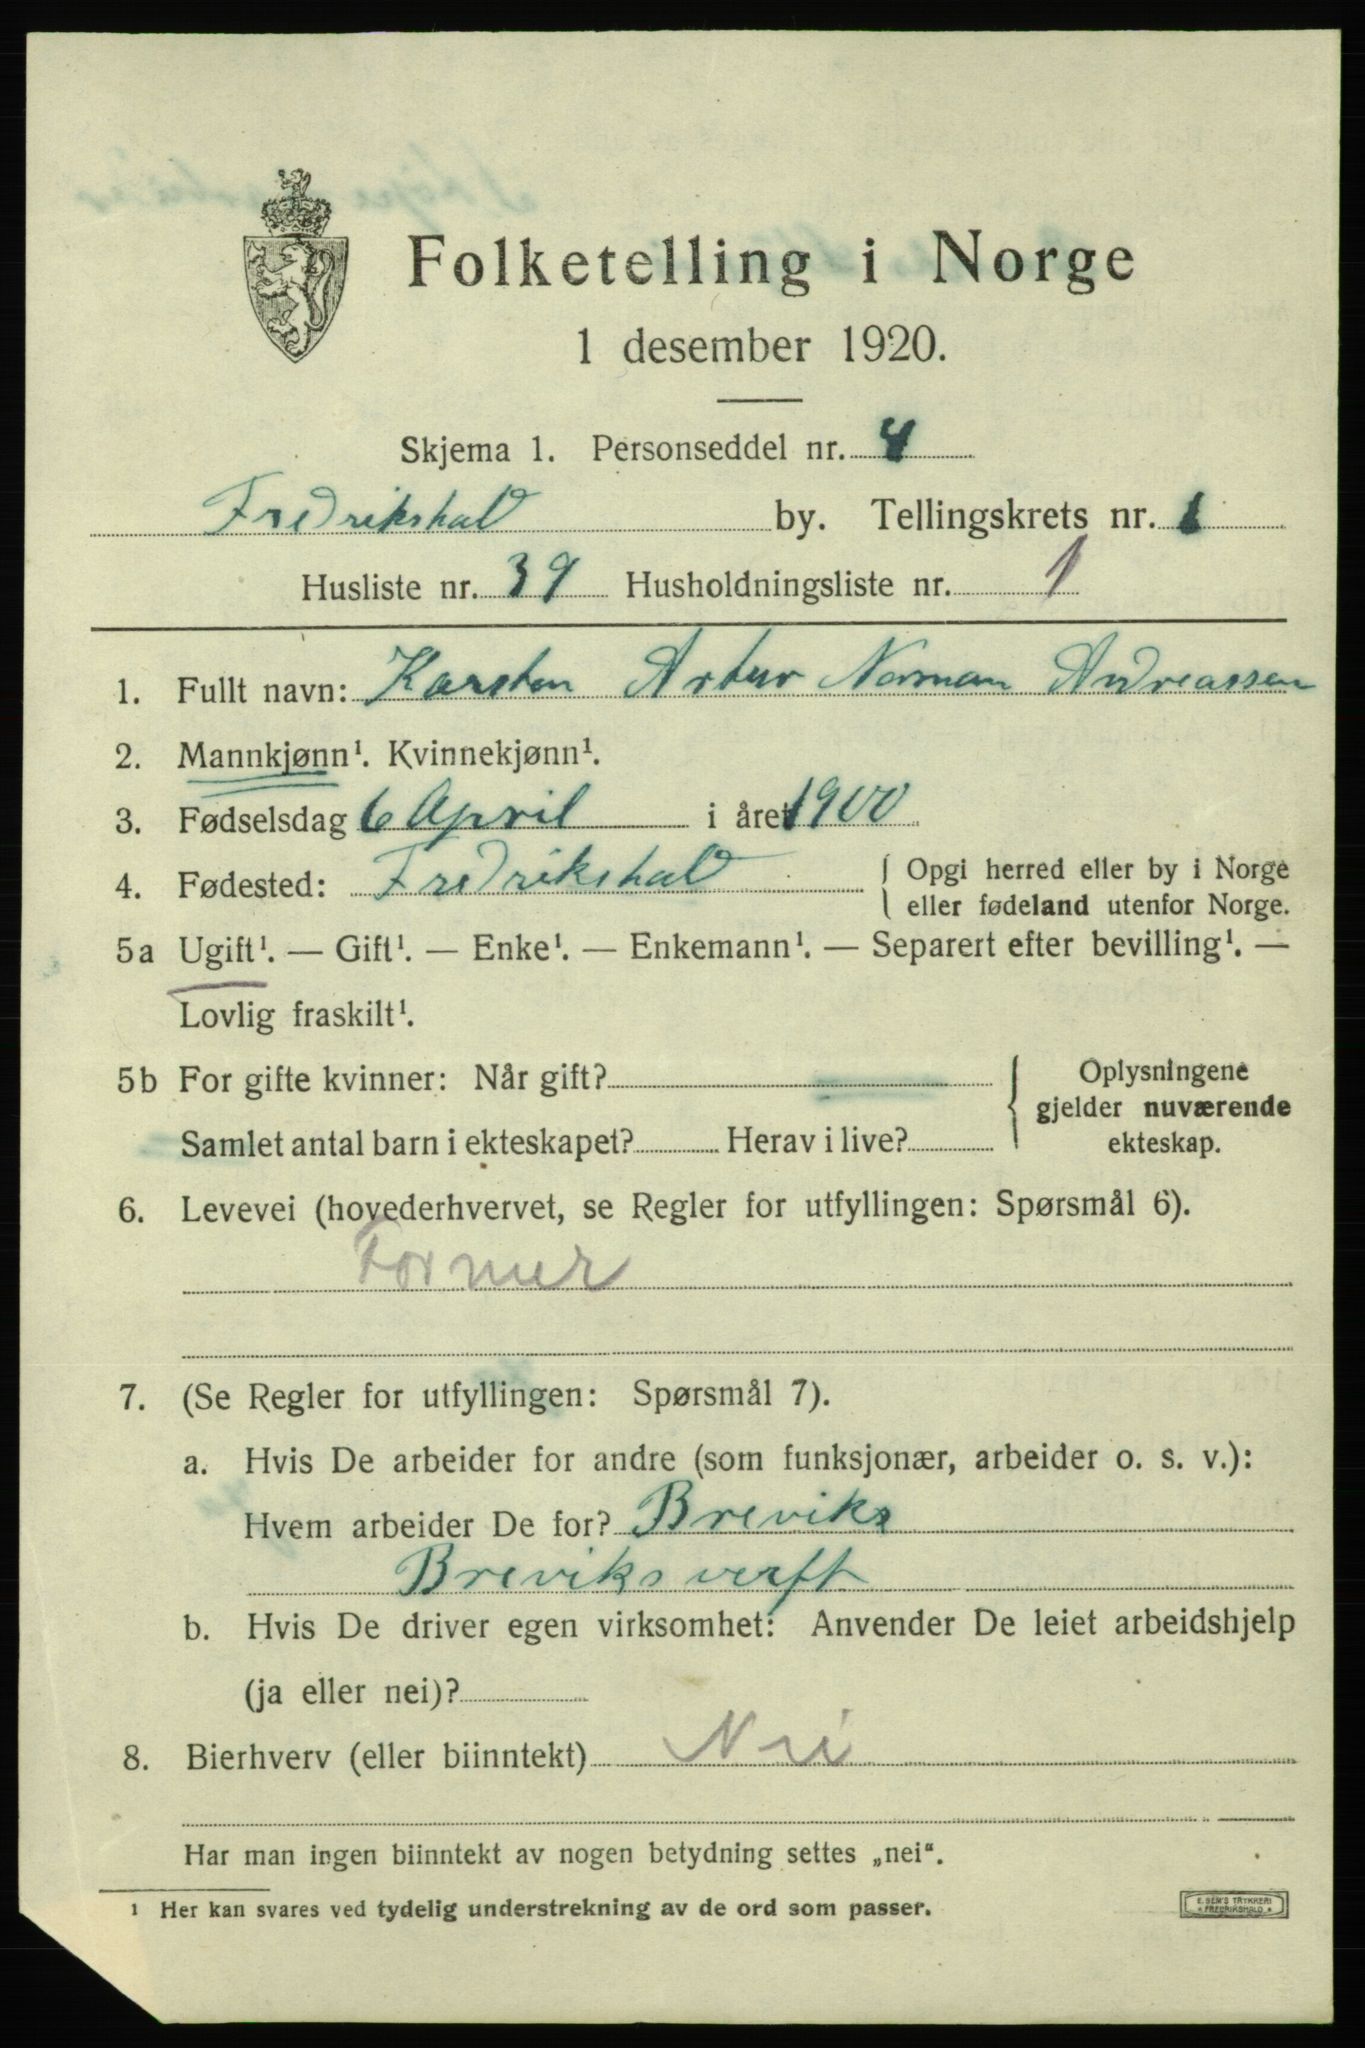 Folketelling i Norge
1 desember 1920.
Skjema 1. Personseddel nr. 4
Fredrikshald by. Tellingskrets nr. 1
Husliste nr. 39 Husholdningsliste nr. 1
1. Fullt navn: Karsten Artur Norman Andreassen
2. Mannkjønn¹. Kvinnekjønn¹.
3. Fødselsdag 6 April i året 1900
4. Fødested: Fredrikshald { Opgi herred eller by i Norge
eller fødeland utenfor Norge.
5a Ugift¹. — Gift¹. — Enke¹. — Enkemann¹. — Separert efter bevilling¹. —
Lovlig fraskilt¹.
5b For gifte kvinner: Når gift? { Oplysningene
gjelder nuværende
Samlet antal barn i ekteskapet? Herav i live? ekteskap.
6. Levevei (hovederhvervet, se Regler for utfyllingen: Spørsmål 6).
Former
7. (Se Regler for utfyllingen: Spørsmål 7).
a. Hvis De arbeider for andre (som funksjonær, arbeider o. s. v.):
Hvem arbeider De for? Breviks
Breviks verft
b. Hvis De driver egen virksomhet: Anvender De leiet arbeidshjelp
(ja eller nei)?
8. Bierhverv (eller biinntekt) Nei
Har man ingen biinntekt av nogen betydning settes „nei“.
¹ Her kan svares ved tydelig understrekning av de ord som passer.
E. SEM'S TRYKKERI
* FREDRIKSHALD *